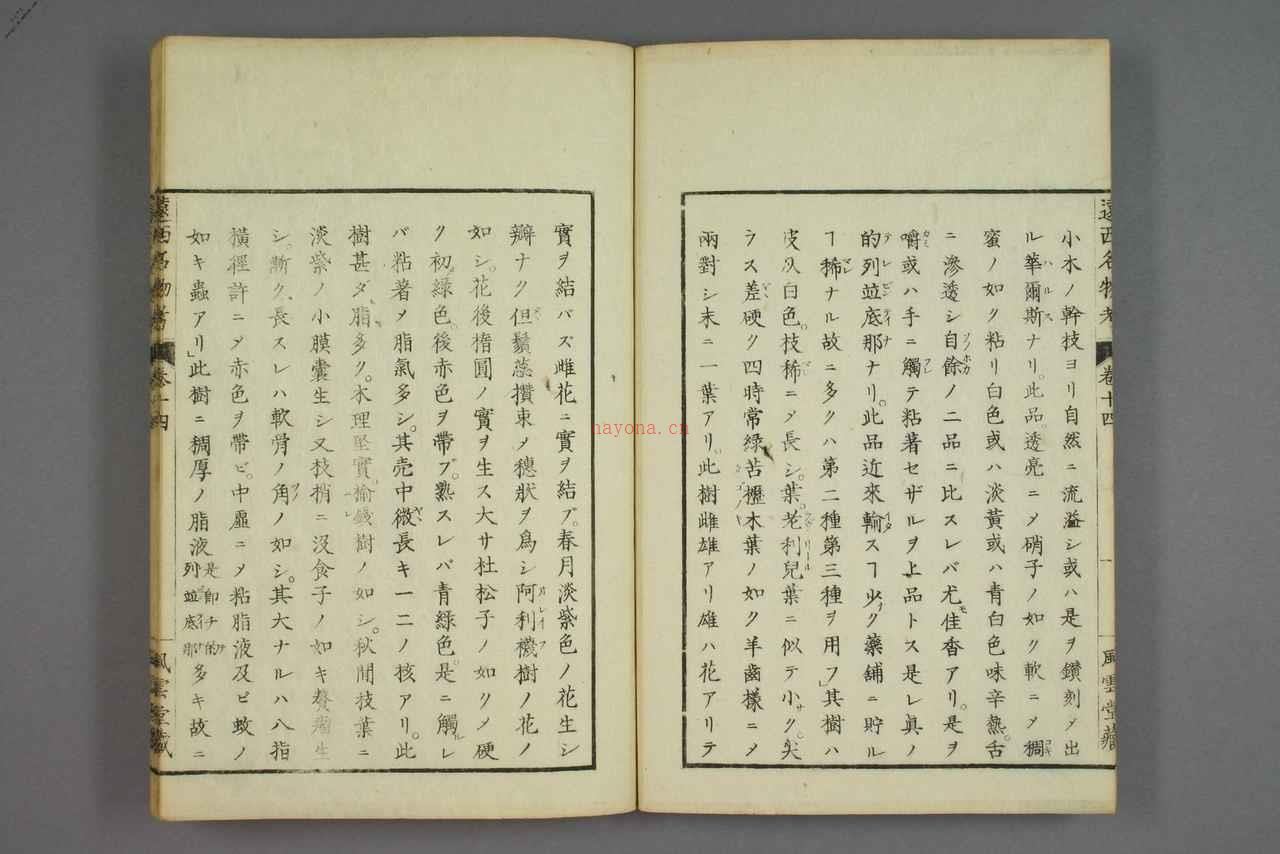 遠西名物考 卷十四 一 風雲堂藏
小木ノ幹枝ヨリ自然ニ流溢シ或ハ是ヲ鑽刻〆出
ル華爾斯ナリ此品透亮ニ〆硝子ノ如ク軟ニ〆稠
蜜ノ如ク粘リ白色或ハ淡黄或ハ青白色味辛熱。舌
ニ滲透シ自餘ノ二品ニ比スレバ尤佳香アリ。是ヲ
嚼或ハ手ニ觸テ粘著セザルヲ上品トス是レ眞ノ
的列並底那ナリ。此品近來輸スヿ少ク藥鋪ニ貯ル
ヿ稀ナル故ニ多クハ第二種第三種ヲ用フ」其樹ハ
皮灰白色。枝稀ニ〆長シ。葉。老利兒葉ニ似テ小ク。尖
ラス差硬ク四時常緑苦櫪木葉ノ如ク羊齒樣ニ〆
兩對シ末ニ一葉アリ。此樹雌雄アリ雄ハ花アリテ
實ヲ結バズ雌花ニ實ヲ結ブ。春月淡紫色ノ花生シ
瓣ナク但鬚蕊攢束〆穗狀ヲ爲シ阿利襪樹ノ花ノ
如シ。花後橢圓ノ實ヲ生ス大サ杜松子ノ如ク〆硬
ク初緑色。後赤色ヲ帶ブ。熟スレバ青緑色。是ニ觸レ
バ粘着〆脂氣多シ。其売中微長キ一二ノ核アリ。此
樹甚ダ脂多ク。木理堅實榆錢樹ノ如シ。秋間枝葉ニ
淡紫ノ小膜囊生シ又枝梢ニ沒食子ノ如キ贅瘤生
シ。漸ク長スレハ軟骨ノ角ノ如シ。其大ナルハ八指
橫徑許ニ〆赤色ヲ帶ビ。中虛ニ〆粘脂液及ビ蚊ノ
如キ蟲アリ」此樹ニ稠厚ノ脂液是即チ的列並底那多キ故ニ
遠西名物考 卷十四 風雲堂藏
nayona.cn